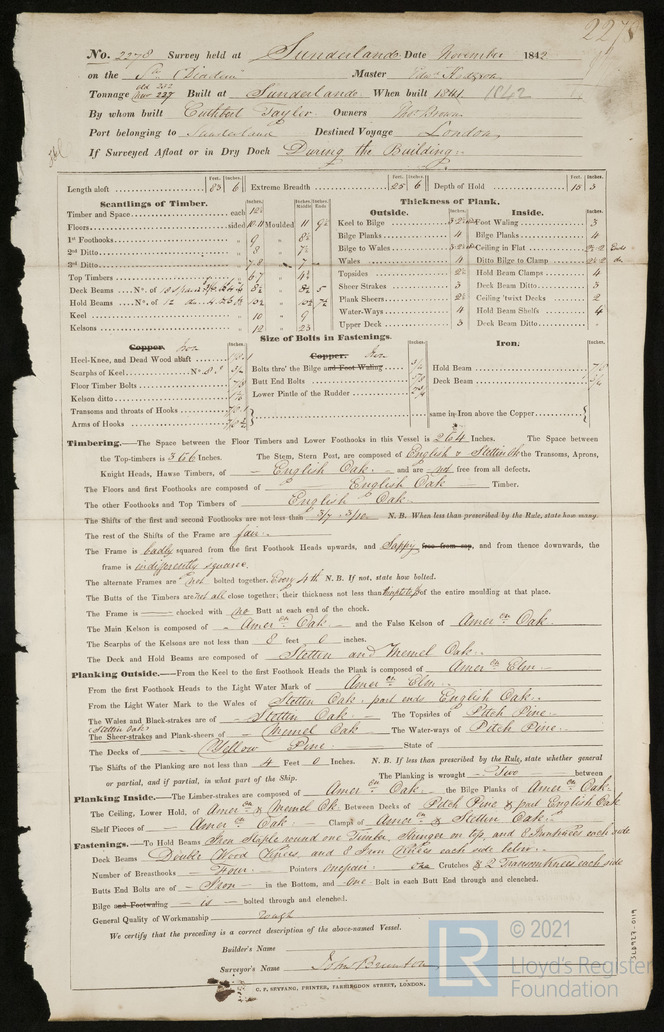 2278
No. 2278 Survey held at Sunderland Date November 1842
on the Sr. Diadem Master Edwd. Hodgson
Tonnage old 232 new 227 Built at Sunderland When built 1841 1842
By whom built Cuthbert Taylor Owners Thos Brown
Port belonging to Sunderland Destined Voyage London
If Surveyed Afloat or in Dry Dock During the Building
Length aloft 83 6 Extreme Breadth 25 6 Depth of Hold 15 3
Scantlings of Timber.
Timber and Space each 12½
Floors sided 10.11 Moulded 11 9½
1st Foothooks 9 " 8½
2nd Ditto 8 " 7½
3rd Ditto 7.8 7
Top Timbers 6 7 4½
Deck Beams No. of
Hold Beams No. of 12
Keel 10 " 9
Kelsons 12 " 23
Thickness of Plank.
Outside. Inside.
Keel to Bilge Foot Waling 3
Bilge Planks 4 Bilge Planks 4
Bilge to Wales Ceiling in Flat
Wales 4 Ditto Bilge to Clamp
Topsides 2½ Hold Beam Clamps 4
Sheer Strakes 3 Deck Beam Ditto 3
Plank Sheers 2½ Ceiling 'twixt Decks 2
Water-Ways 4 Hold Beam Shelfs 4
Upper Deck 3 Deck Beam Ditto
Size of Bolts in Fastenings.
Copper. Iron
Heel-Knee, and Dead Wood abaft
Scarphs of Keel No. 8
Floor Timber Bolts
Kelson ditto
Transoms and throats of Hooks
Arms of Hooks
Copper. Iron
Bolts thro' the Bilge and Foot Waling
Butt End Bolts
Lower Pintle of the Rudder
Iron.
Hold Beam
Deck Beam
same in Iron above the Copper
Timbering.—The Space between the Floor Timbers and Lower Foothooks in this Vessel is 2 6 4 Inches. The Space between
the Top-timbers is 3 6 6 Inches. The Stem, Stern Post, are composed of English & Stettin Ok the Transoms, Aprons,
Knight Heads, Hawse Timbers, of English Oak and are not free from all defects.
The Floors and first Foothooks are composed of English Oak Timber.
The other Foothooks and Top Timbers of English Oak
The Shifts of the first and second Foothooks are not less than 3/7 3/10 N. B. When less than prescribed by the Rule, state how many.
The rest of the Shifts of the Frame are fair
The Frame is badly squared from the first Foothook Heads upwards, and Sappy free from sap, and from thence downwards, the
frame is indifferently square.
The alternate Frames are not bolted together. Every 4th N. B. If not, state how bolted.
The Butts of the Timbers are not all close together; their thickness not less than of the entire moulding at that place.
The Frame is chocked with no Butt at each end of the chock.
The Main Kelson is composed of Amern Oak and the False Kelson of Amern Oak
The Scarphs of the Kelsons are not less than 8 feet 0 inches.
The Deck and Hold Beams are composed of Stettin and Memel Oak
Planking Outside.—From the Keel to the first Foothook Heads the Plank is composed of Amern Elm
From the first Foothook Heads to the Light Water Mark of Amern Elm
From the Light Water Mark to the Wales of Stettin Oak part ends English Oak
The Wales and Black-strakes are of Stettin Oak The Topsides of Pitch Pine
(Stettin Oak)
The Sheer-strakes and Plank-sheers of Memel Oak The Water-ways of Pitch Pine
The Decks of Yellow Pine State of
The Shifts of the Planking are not less than 4 Feet 0 Inches. N. B. If less than prescribed by the Rule, state whether general
or partial, and if partial, in what part of the Ship. The Planking is wrought Two between
Planking Inside.—The Limber-strakes are composed of Amern Oak the Bilge Planks of Amern Oak
The Ceiling, Lower Hold, of Amern & Memel Ok Between Decks of Pitch Pine & part English Oak
Shelf Pieces of Amern Oak Clamps of Amern & Stettin Oak
Fastenings.—To Hold Beams Iron Staple round one Timber, Stringer on top, and 8 Iron knees each side
Deck Beams Double Wood Knees, and 8 Iron each side below
Number of Breasthooks Four Pointers one pair Crutches & 2 Transom knees each side
Butts End Bolts are of Iron in the Bottom, and one Bolt in each Butt End through and clenched.
Bilge and Footwaling is bolted through and clenched.
General Quality of Workmanship rough
We certify that the preceding is a correct description of the above-named Vessel.
Builder's Name
Surveyor's Name John Brunton
C. F. SEYFANG, PRINTER, FARRINGDON STREET, LONDON.
SLD927-0119
LR
© 2021
Lloyd's Register
Foundation